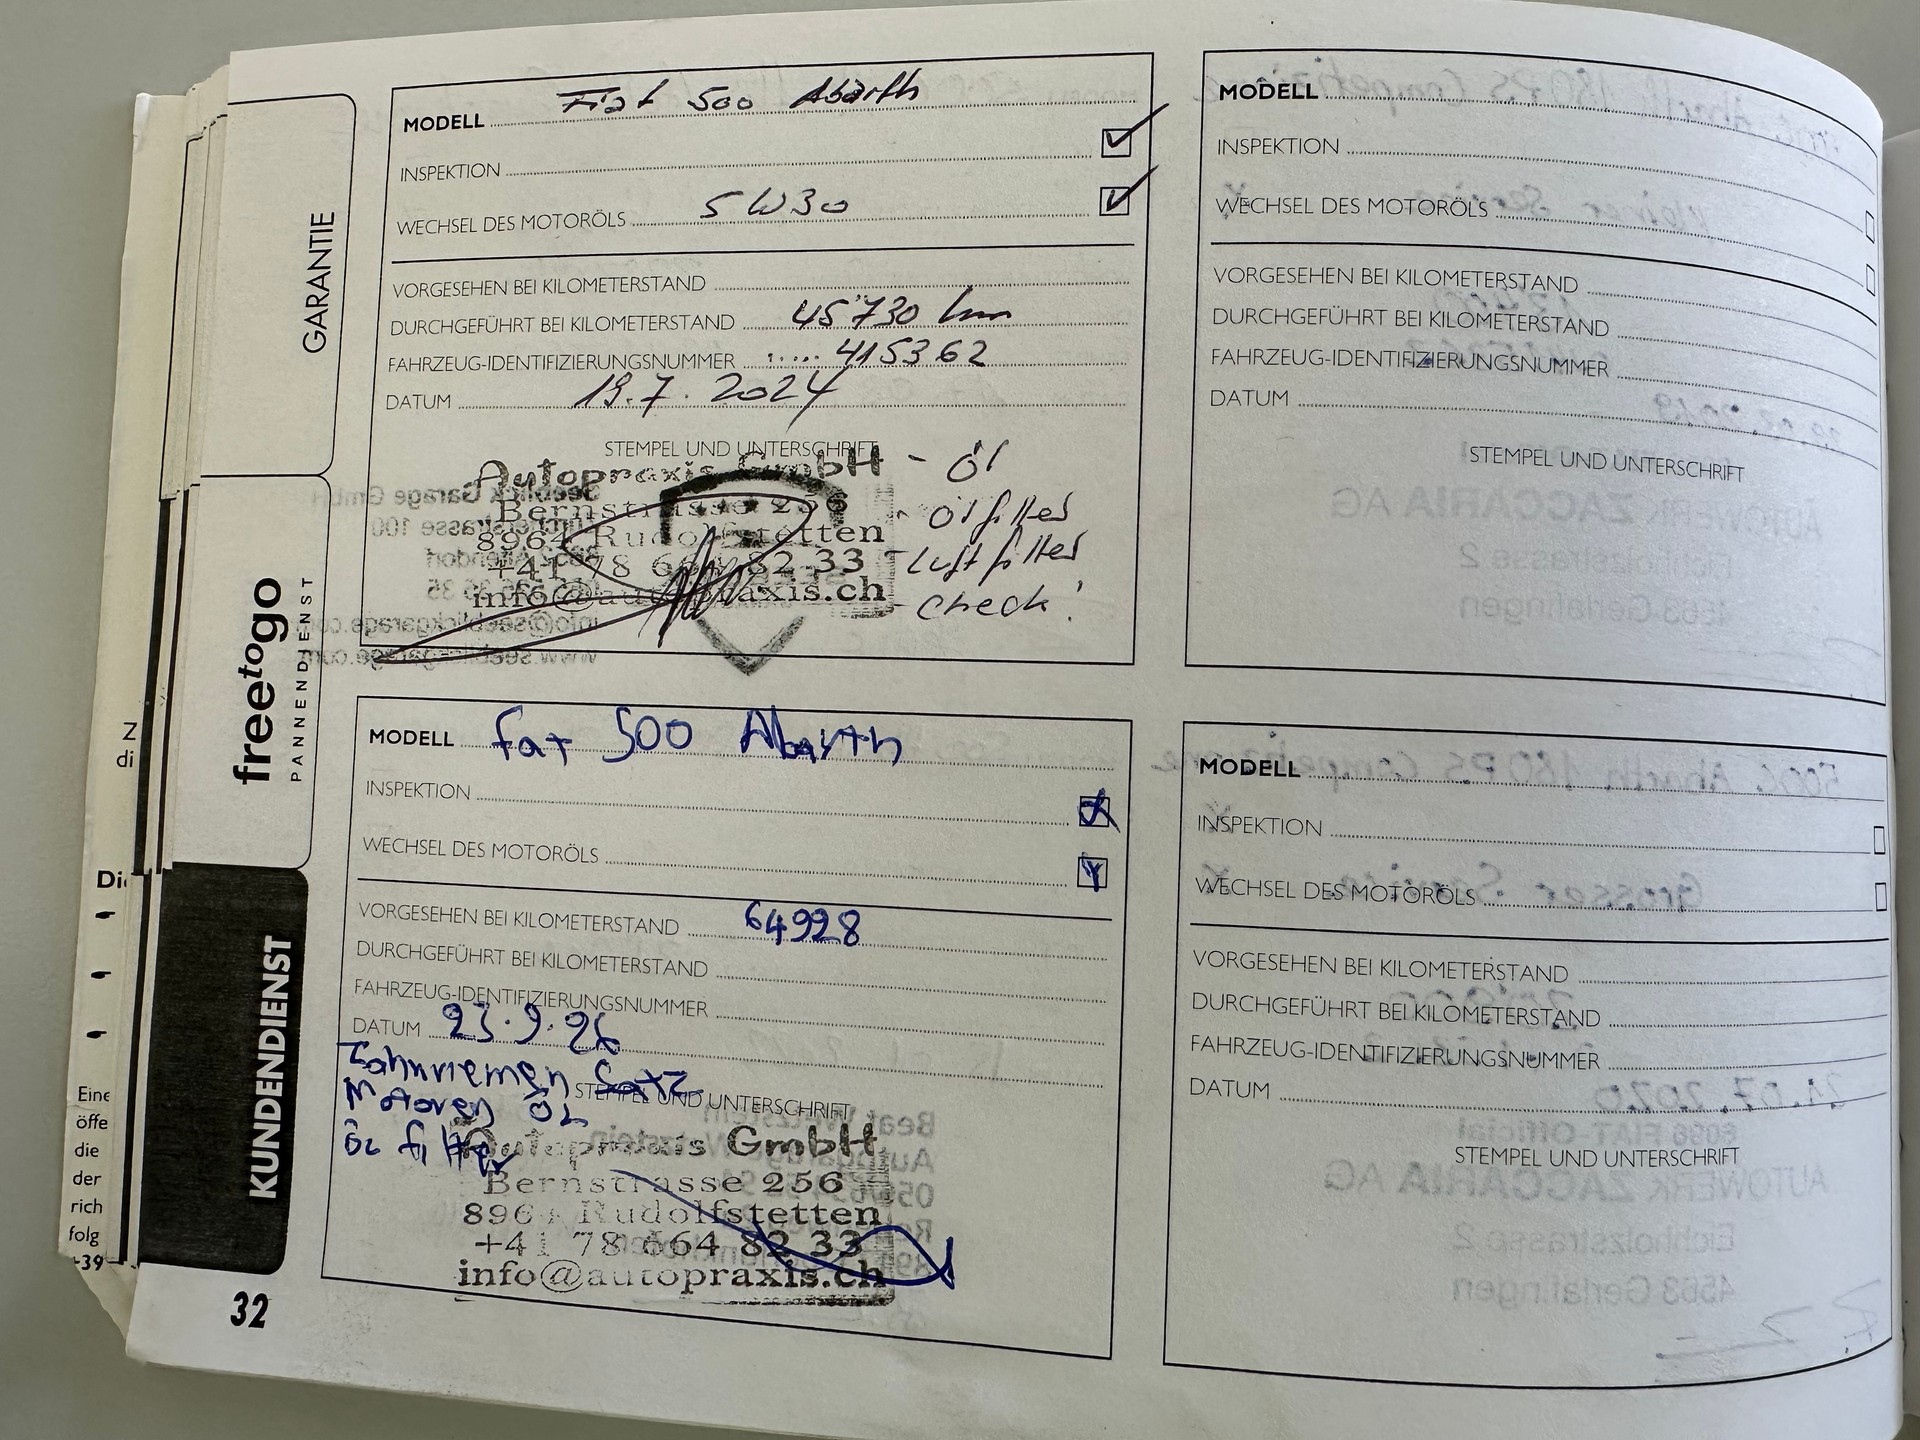 GARANTIE
freetogo
PANNENDIENST
KUNDENDIENST
32
Z
di
Die
Eine
öffe
die
der
rich
folg
+39
MODELL Fiat 500 Abarth
INSPEKTION
WECHSEL DES MOTORÖLS 5W30
VORGESEHEN BEI KILOMETERSTAND
DURCHGEFÜHRT BEI KILOMETERSTAND 45'730 km
FAHRZEUG-IDENTIFIZIERUNGSNUMMER ..... 415362
DATUM 19.7.2024
STEMPEL UND UNTERSCHRIFT
Autopraxis GmbH
Bernstrasse 256
8964 Rudolfstetten
+41 78 664 82 33
info@autopraxis.ch
- Öl
- Ölfilter
- Luftfilter
- Check!
MODELL fat 500 Abarth
INSPEKTION
WECHSEL DES MOTORÖLS
VORGESEHEN BEI KILOMETERSTAND 64928
DURCHGEFÜHRT BEI KILOMETERSTAND
FAHRZEUG-IDENTIFIZIERUNGSNUMMER
DATUM 23.9.
Zahnriemen Satz
Motoren ÖL
ÖL filter
STEMPEL UND UNTERSCHRIFT
Autopraxis GmbH
Bernstrasse 256
8964 Rudolfstetten
+41 78 664 82 33
info@autopraxis.ch
MODELL
INSPEKTION
WECHSEL DES MOTORÖLS
VORGESEHEN BEI KILOMETERSTAND
DURCHGEFÜHRT BEI KILOMETERSTAND
FAHRZEUG-IDENTIFIZIERUNGSNUMMER
DATUM
STEMPEL UND UNTERSCHRIFT
MODELL
INSPEKTION
WECHSEL DES MOTORÖLS
VORGESEHEN BEI KILOMETERSTAND
DURCHGEFÜHRT BEI KILOMETERSTAND
FAHRZEUG-IDENTIFIZIERUNGSNUMMER
DATUM
STEMPEL UND UNTERSCHRIFT